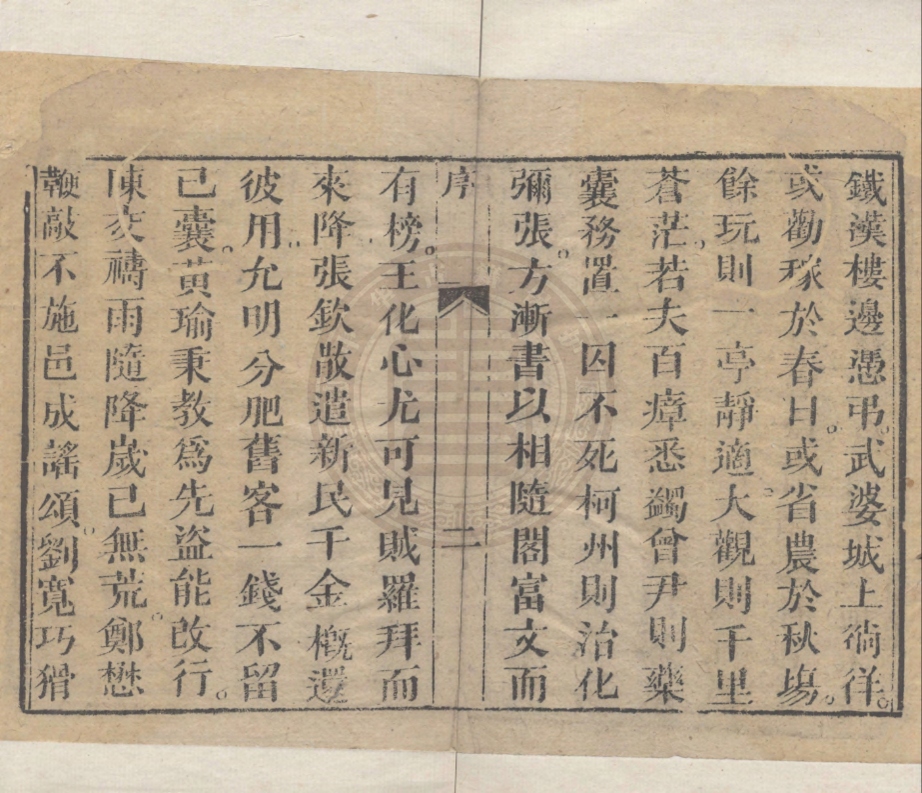 鐵漢樓邊憑弔。武婆城上徜徉。
或勸稼於春日。或省農於秋場。
餘玩則一亭靜適。大觀則千里
蒼茫。若夫百瘴悉蠲曾尹則藥
囊務置一囚不死柯州則治化
彌張。方漸書以相隨閣富文而
序 二
有榜。王化心尤可見賊羅拜而
來降張欽散遣新民千金概還
彼用。允明分肥舊客一錢不留
已囊。黃瑜秉教為先盜能改行。
陳交禱雨隨降歲已無荒。鄭懋
鞭敲不施邑成謠頌。劉寬巧猾